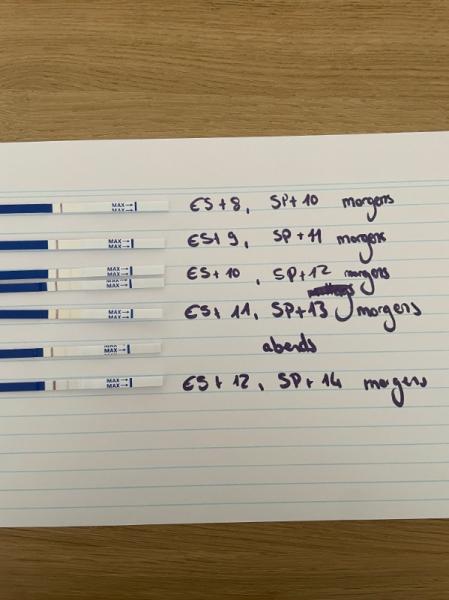 MAX→ ES+8, SP+10 morgens
MAX→
MAX→ ES+9, SP+11 morgens
MAX→
MAX→ ES+10, SP+12 morgens
MAX→
MAX→
MAX→ ES+11, SP+13 morgens
MAX→
MAX→ abends
MAX→ ES+12, SP+14 morgens
MAX→